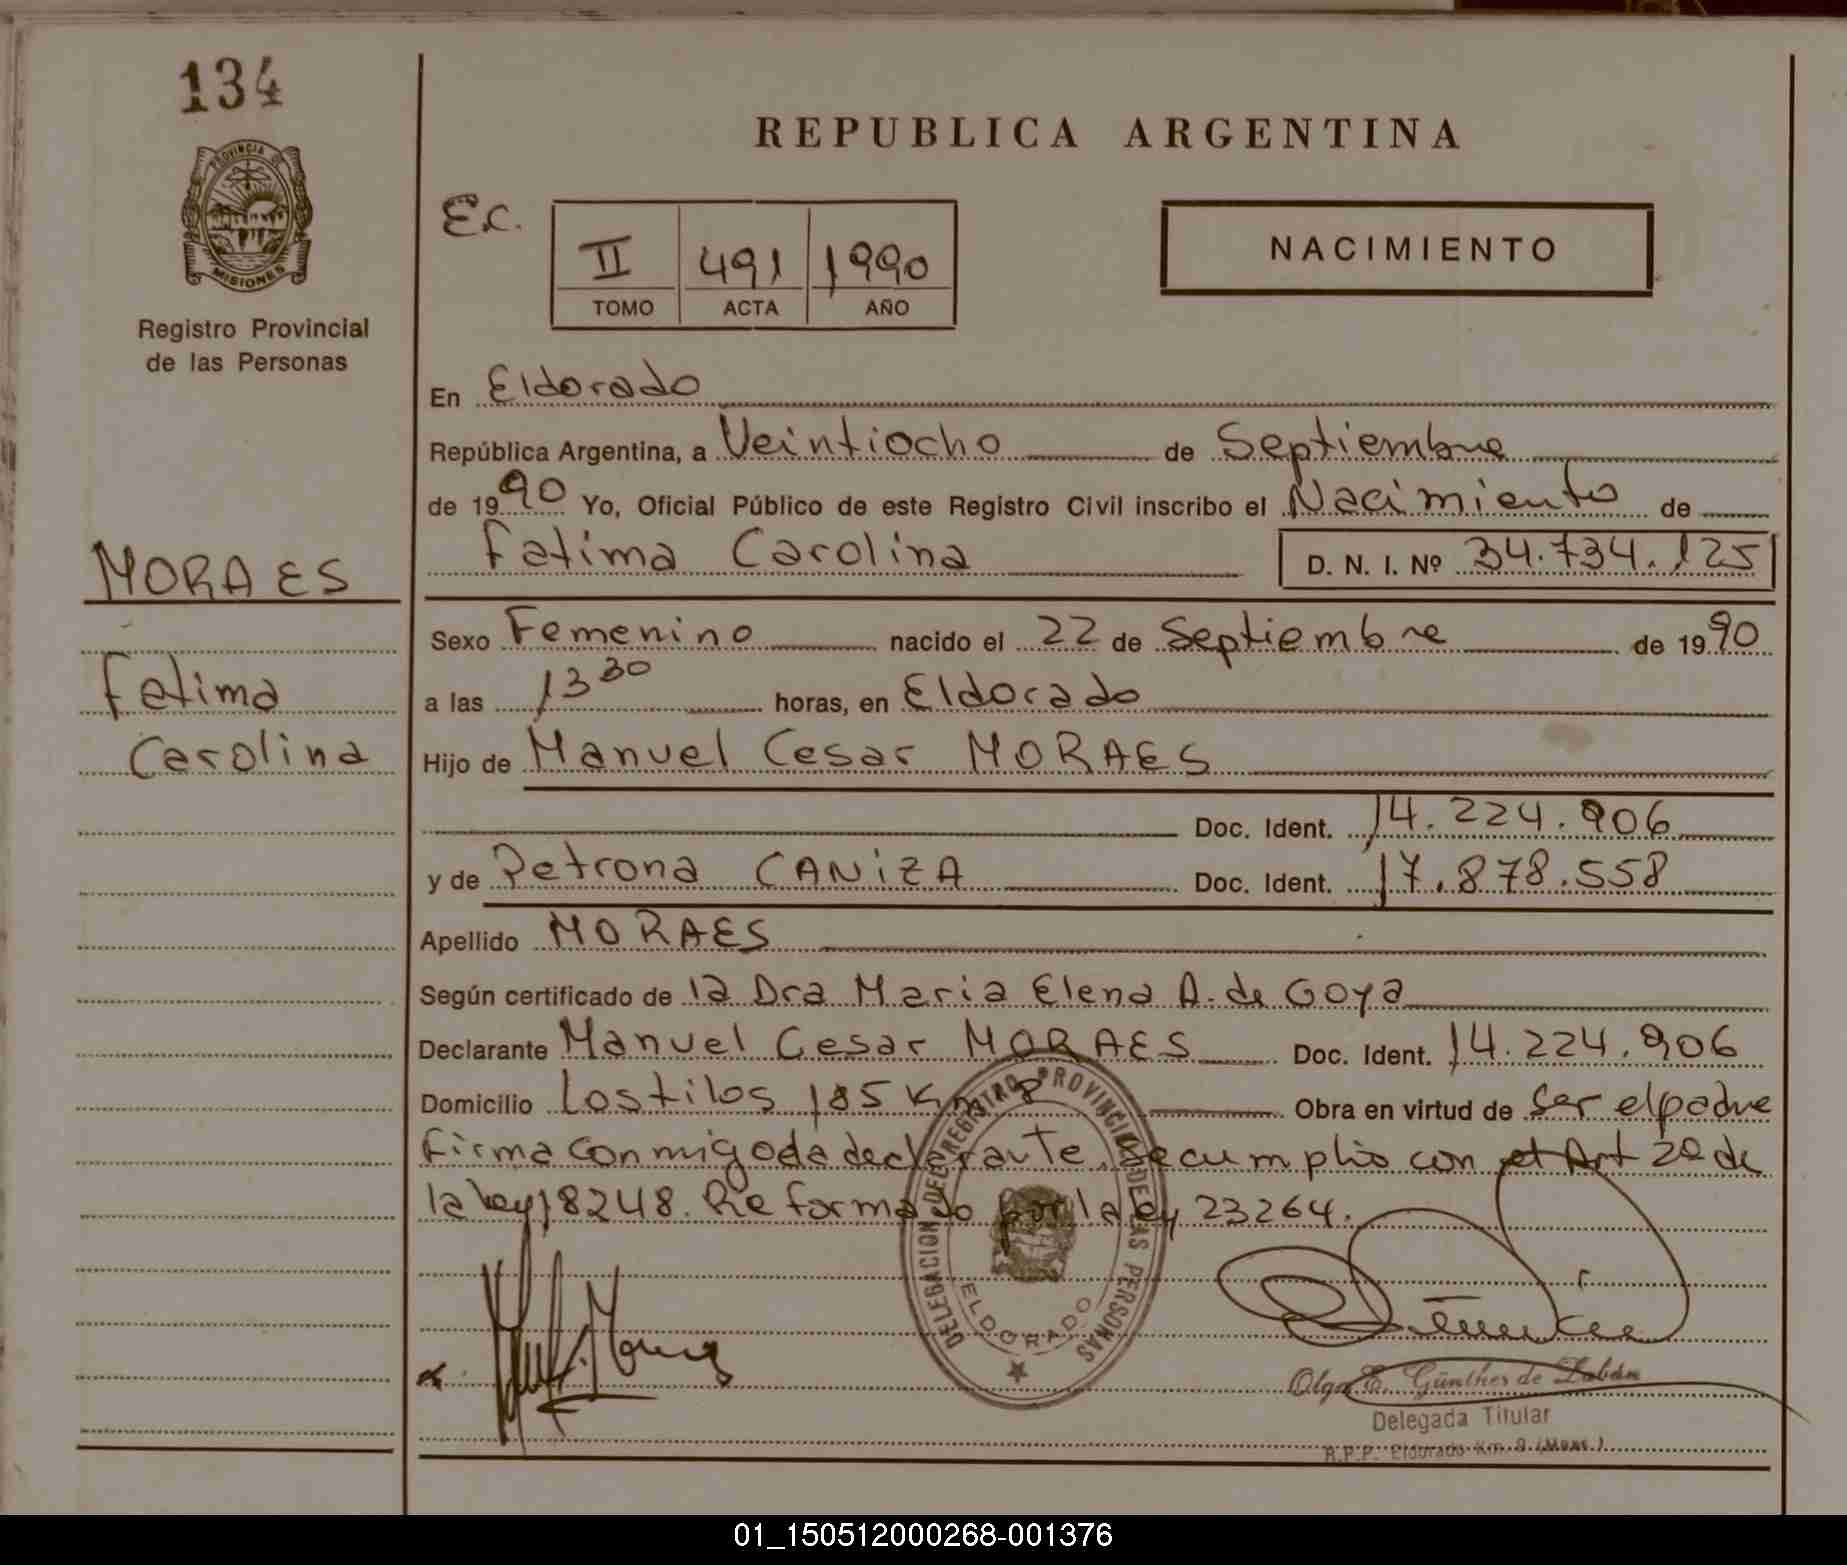 134
PROVINCIA DE
MISIONES
Registro Provincial
de las Personas
MORAES
Fatima
Carolina
REPUBLICA ARGENTINA
E.C.
II 491 1990
TOMO ACTA AÑO
NACIMIENTO
En Eldorado
República Argentina, a Veintiocho de Septiembre
de 1990 Yo, Oficial Público de este Registro Civil inscribo el Nacimiento de
Fatima Carolina D. N. I. Nº 34.734.125
Sexo Femenino nacido el 22 de Septiembre de 1990
a las 13 30 horas, en Eldorado
Hijo de Manuel Cesar MORAES
Doc. Ident. 14.224.906
y de Petrona CANiZA Doc. Ident. 17.878.558
Apellido MORAES
Según certificado de la Dra Maria Elena A. de Goya
Declarante Manuel Cesar MORAES Doc. Ident. 14.224.906
Domicilio Los tilos 185 Km 8 Obra en virtud de ser el padre
Firma conmigo da declarante. Se cumplio con el Art 2º de
la ley 18248. Reformado por la ley 23264.
DELEGACION DEL REGISTRO PROVINCIAL DE LAS PERSONAS
ELDORADO
Olga E. Günther de Zabán
Delegada Titular
R.P.P. Eldorado Km. 9 (Mnes.)
01_150512000268-001376